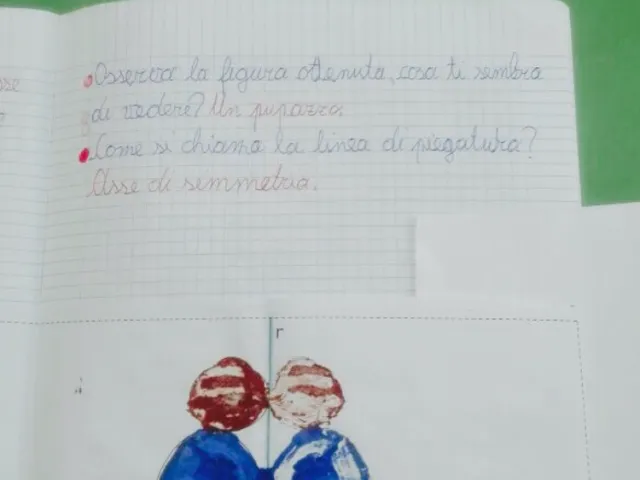 Osserva la figura ottenuta, cosa ti sembra
di vedere? Un pupazzo.
Come si chiama la linea di piegatura?
Asse di semmetria.
r